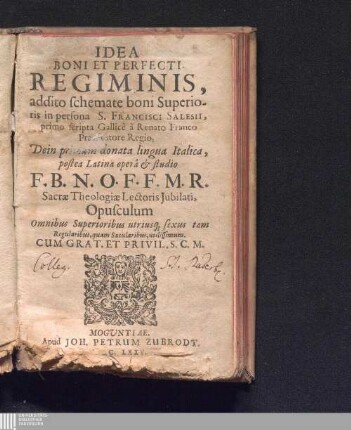 IDEA
BONI ET PERFECTI
REGIMINIS,
addito schemate boni Superio-
ris in persona S. FRANCISCI SALESII,
primo scripta Gallicè à Renato Franco
Regio,
Dein donata lingua Italica,
postea Latina operâ & studio
F. B. N. O. F. F. M. R.
Sacræ Theologiæ Lectoris Jubilati,
Opusculum
Omnibus Superioribus utriusq; sexus tam
Regularibus, quam Sæcularibus, utilissimum.
CUM GRAT. ET PRIVIL. S. C. M.
Colleg.
MOGUNTIAE.
Apud JOH. PETRUM ZUBRODT.